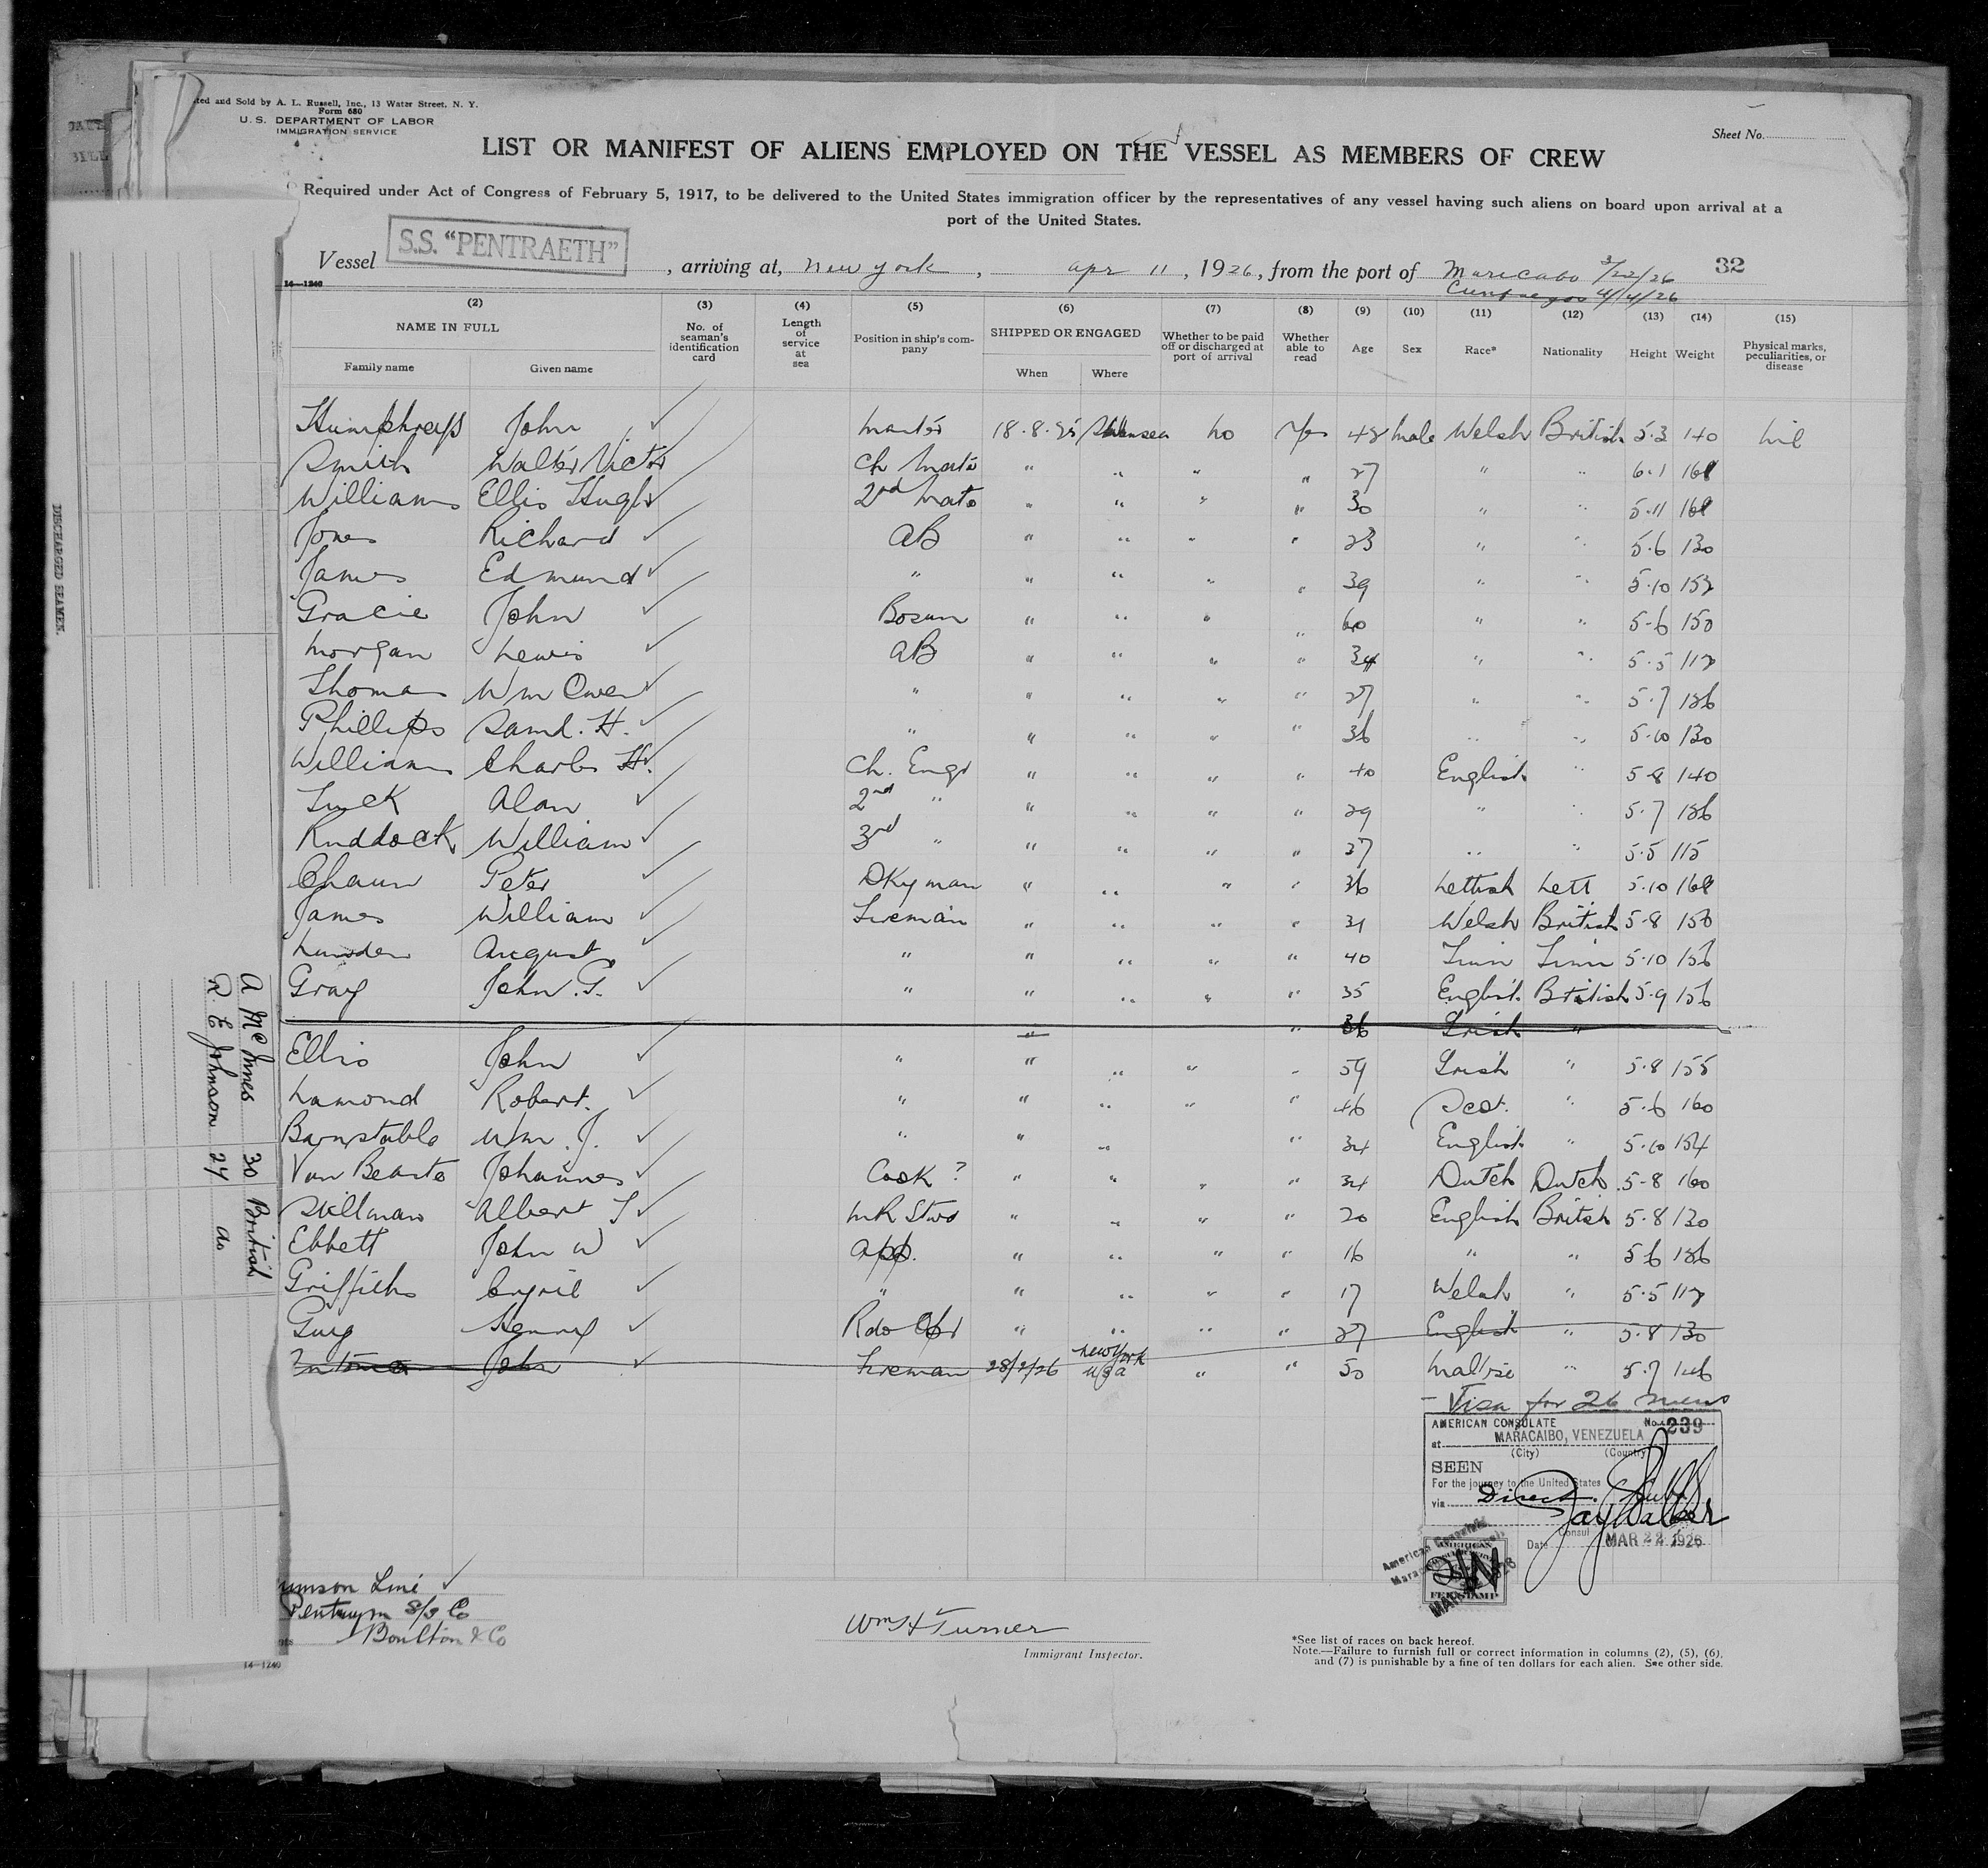 ted and Sold by A. L. Russell, Inc., 13 Water Street, N. Y.
Form 680
U. S. DEPARTMENT OF LABOR
IMMIGRATION SERVICE
Sheet No.
LIST OR MANIFEST OF ALIENS EMPLOYED ON THE VESSEL AS MEMBERS OF CREW
Required under Act of Congress of February 5, 1917, to be delivered to the United States immigration officer by the representatives of any vessel having such aliens on board upon arrival at a
port of the United States.
Vessel S.S. "PENTRAETH", arriving at, New York, apr 11, 1926, from the port of Maricabo 3/22/26 32
4/4/26
14—1240
(2) (3) (4) (5) (6) (7) (8) (9) (10) (11) (12) (13) (14) (15)
NAME IN FULL No. of seaman's identification card Length of service at sea Position in ship's company SHIPPED OR ENGAGED Whether to be paid off or discharged at port of arrival Whether able to read Age Sex Race* Nationality Height Weight Physical marks, peculiarities, or disease
Family name Given name When Where
Humphreys John Master 18.8.25 Swansea no Yes 48 Male Welsh British 5.3 140 nil
Smith Walter Victor Ch Mate " " " " 27 " " 6.1 168
Williams Ellis Hugh 2nd Mate " " " " 30 " " 5.11 168
Jones Richard AB " " " " 23 " " 5.6 130
James Edmund " " " " " 39 " " 5.10 152
Gracie John Bosun " " " " 60 " " 5-6 150
Morgan Lewis AB " " " " 34 " " 5.5 112
Thomas Wm Owen " " " " " 27 " " 5.7 136
Phillips Saml. H. " " " " " 36 " " 5.10 130
Williams Charles H. Ch. Engr " " " " 40 English " 5-8 140
Tuck Alan 2nd " " " " " 29 " " 5.7 136
Ruddock William 3rd " " " " " 27 " " 5.5 115
Chaun Peter Dkyman " " " " 36 Lettish Lett 5.10 168
James William Fireman " " " " 31 Welsh British 5-8 150
August " " " " " 40 Finn Finn 5.10 156
Gray John. G. " " " " " 35 English British 5.9 156
" " 36 Irish "
Ellis John " " " " " 59 Irish " 5.8 155
Lamond Robert. " " " " " 46 Scot. " 5.6 160
Barnstable Wm. J. " " " " 34 English " 5.10 154
Van Bearte Johannes Cook ? " " " " 34 Dutch Dutch 5-8 160
Stillman Albert T MR Stwd " " " " 20 English British 5.8 130
Ebbett John W App. " " " " 16 " " 5.6 136
Griffiths Cyril " " " " " 17 Welsh " 5.5 112
Guy Henry Rdo Opr " " " " 27 English " 5.8 130
John Fireman 28/2/26 New York USA " " 50 Maltese " 5.7 146
Visa for 26 mens
AMERICAN CONSULATE No. 239
at MARACAIBO, VENEZUELA
(City) (Country)
SEEN
For the journey to the United States
via Direct.
Consul
Date MAR 22 1926
AMERICAN
FEE STAMP
DISCHARGED SEAMEN.
A McInnes 30 British
R E Johnson 24 do
Line
S/S Co
Boulton & Co
14—1240
Wm H Turner
Immigrant Inspector.
*See list of races on back hereof.
Note.—Failure to furnish full or correct information in columns (2), (5), (6),
and (7) is punishable by a fine of ten dollars for each alien. See other side.